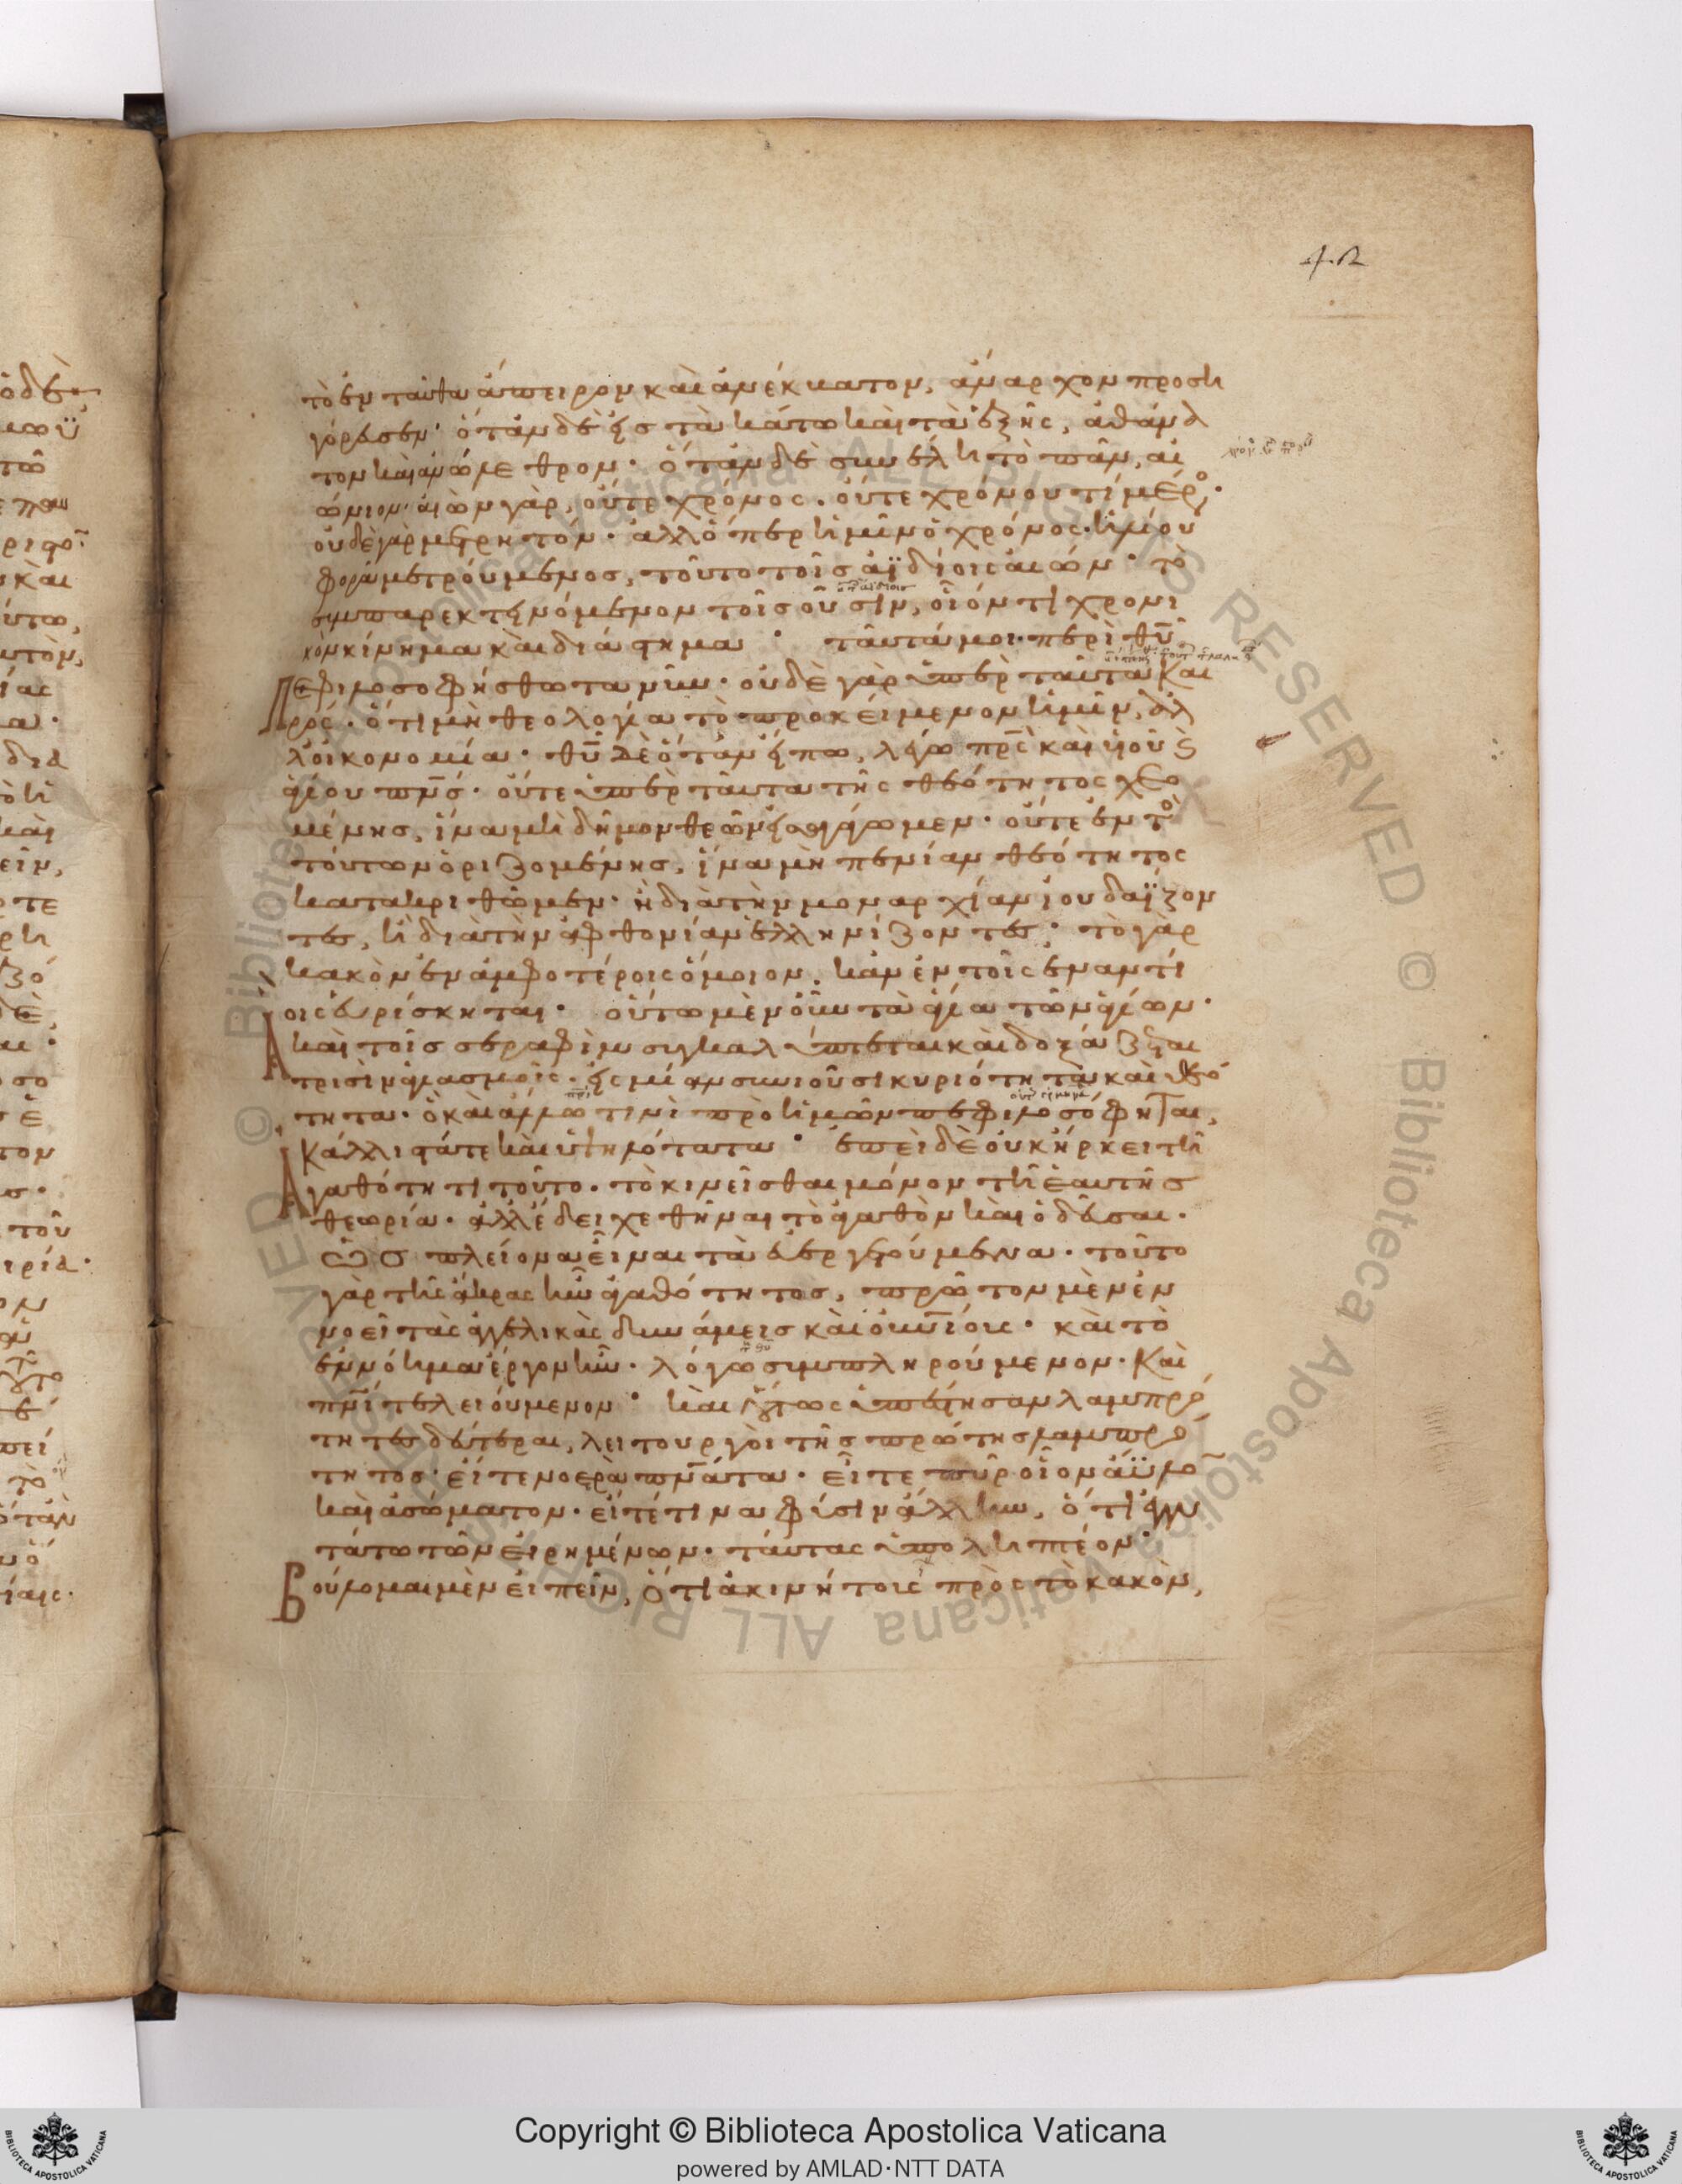 42
τὸ ἐνταῦθα ἄπειρον καὶ ἀνέκβατον, ἄναρχον προση
γόρευσεν· ὅταν δὲ εἰς τὰ κάτω καὶ τὰ ἑξῆς, ἀθάνα
τον καὶ ἀνώλεθρον· ὅταν δὲ συνέλῃ τὸ πᾶν, αἰ
ώνιον· αἰὼν γὰρ, οὔτε χρόνος. οὔτε χρόνου τι μέρος·
οὐδὲ γὰρ μετρητόν· ἀλλ' ὅπερ ἡμῖν ὁ χρόνος· ἡλίου
φορᾷ μετρούμενος, τοῦτο τοῖς ἀϊδίοις αἰών· τὸ
συμπαρεκτεινόμενον τοῖς οὖσιν, οἷόν τι χρονι
κὸν κίνημα καὶ διάστημα· ταῦτά μοι περὶ θῦ
πεφιλοσοφήσθω τανῦν· οὐδὲ γὰρ ὑπὲρ ταῦτα και
ρός· ὅτι μὴ θεολογία τὸ προκείμενον ἡμῖν, ἀλ
λ' οἰκονομία· θῦ δὲ ὅταν εἴπω, λέγω πρς καὶ υἱοῦ καὶ
ἁγίου πνς· οὔτε ὑπὲρ ταῦτα τῆς θεότητος χεο
μένης, ἵνα μὴ δῆμον θεῶν εἰσαγάγωμεν· οὔτε ἐντὸς
τούτων ὁριζομένης, ἵνα μὴ πενίαν θεότητος
κατακριθῶμεν· ἢ διὰ τὴν μοναρχίαν ἰουδαΐζον
τες, ἢ διὰ τὴν ἀφθονίαν ἑλληνίζοντες· τὸ γὰρ
κακὸν ἐν ἀμφοτέροις ὅμοιον, κἂν ἐν τοῖς ἐναντί
οις εὑρίσκηται· οὕτω μὲν οὖν τὰ ἅγια τῶν ἁγίων·
ἃ καὶ τοῖς σεραφὶμ συγκαλύπτεται καὶ δοξάζεται
τρισὶν ἁγιασμοῖς· εἰς μίαν συνιοῦσι κυριότητα καὶ θεό
τητα· ὃ καὶ ἄλλῳ τινὶ πρὸ ἡμῶν πεφιλοσόφηται,
κάλλιστά τε καὶ ὑψηλότατα· ἐπεὶ δὲ οὐκ ἤρκει τῇ
ἀγαθότητι τοῦτο. τὸ κινεῖσθαι μόνον τῇ ἑαυτῆς
θεωρίᾳ· ἀλλ' ἔδει χεθῆναι τὸ ἀγαθὸν καὶ ὁδεῦσαι·
ὡς πλείονα εἶναι τὰ εὐεργετούμενα· τοῦτο
γὰρ τῆς ἄκρας ἦν ἀγαθότητος, πρῶτον μὲν ἐν
νοεῖ τὰς ἀγγελικὰς δυνάμεις καὶ οὐνίους· καὶ τὸ
ἐννόημα ἔργον ἦν· λόγῳ συμπληρούμενον· καὶ
πνι τελειούμενον· καὶ οὕτως ὑπέστησαν λαμπρό
τητες δεύτεραι, λειτουργοὶ τῆς πρώτης λαμπρό
τητος· εἴτε νοερὰ πνάτα· εἴτε πῦρ οἷον ἄϋλον
καὶ ἀσώματον· εἴτέ τινα φύσιν ἄλλην, ὅτι ἐγγυ
τάτω τῶν εἰρημένων· ταύτας ὑποληπτέον·
βούλομαι μὲν εἰπεῖν, ὅτι ἀκινήτους πρὸς τὸ κακὸν,
Copyright © Biblioteca Apostolica Vaticana
powered by AMLAD·NTT DATA